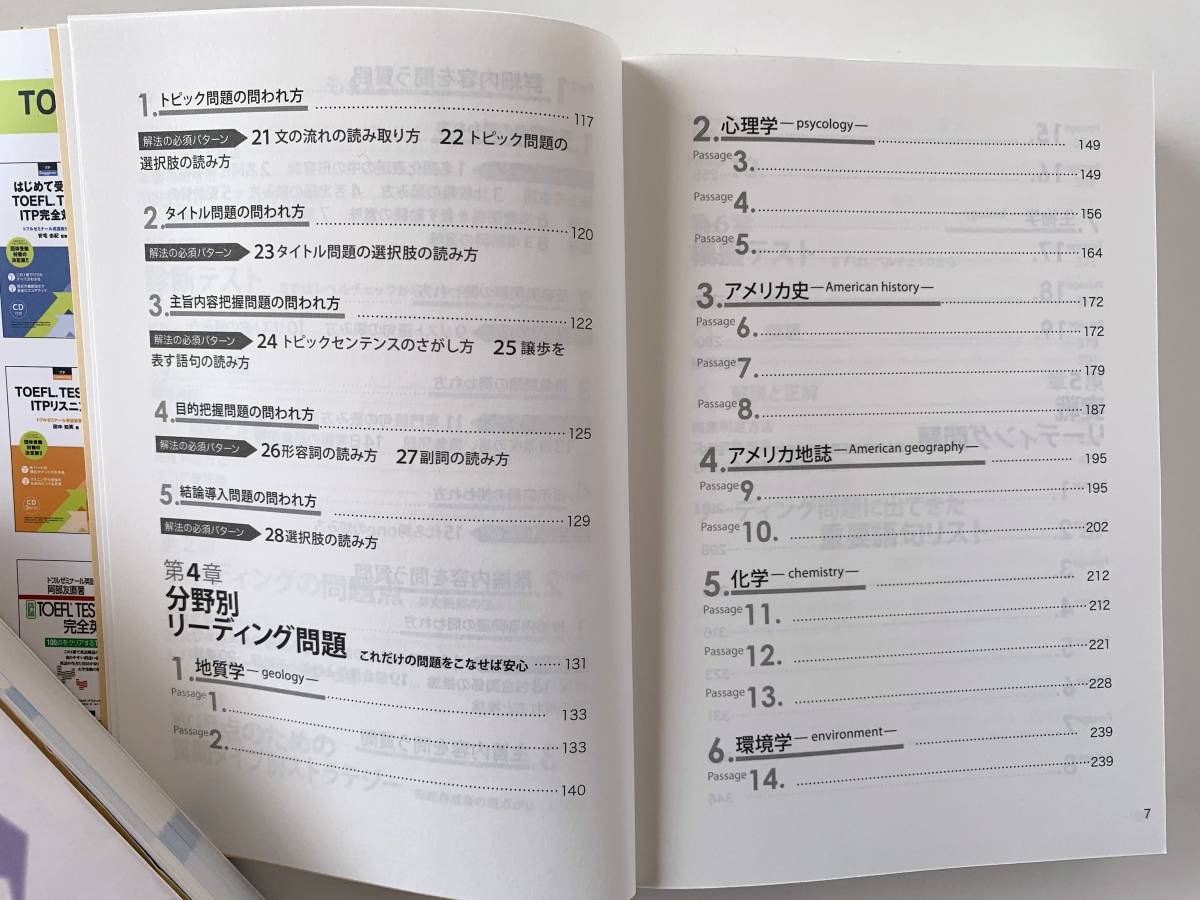 TO
はじめて受
TOEFL TES
ITP完全対
TOEFL TEST
ITPリスニン
CD
トフルゼミナール英語
阿部友直著
TOEFL TES
完全英
1.トピック問題の問われ方 117
解法の必須パターン 21文の流れの読み取り方 22トピック問題の
選択肢の読み方
2.タイトル問題の問われ方 120
解法の必須パターン 23タイトル問題の選択肢の読み方
3.主旨内容把握問題の問われ方 122
解法の必須パターン 24トピックセンテンスのさがし方 25譲歩を
表す語句の読み方
4.目的把握問題の問われ方 125
解法の必須パターン 26形容詞の読み方 27副詞の読み方
5.結論導入問題の問われ方 129
解法の必須パターン 28選択肢の読み方
第4章
分野別
リーディング問題 これだけの問題をこなせば安心 …… 131
1.地質学―geology― 133
Passage 1. 133
Passage 2. 140
2.心理学―psycology― 149
Passage 3. 149
Passage 4. 156
Passage 5. 164
3.アメリカ史―American history― 172
Passage 6. 172
Passage 7. 179
Passage 8. 187
4.アメリカ地誌―American geography― 195
Passage 9. 195
Passage 10. 202
5.化学―chemistry― 212
Passage 11. 212
Passage 12. 221
Passage 13. 228
6.環境学―environment― 239
Passage 14. 239
7